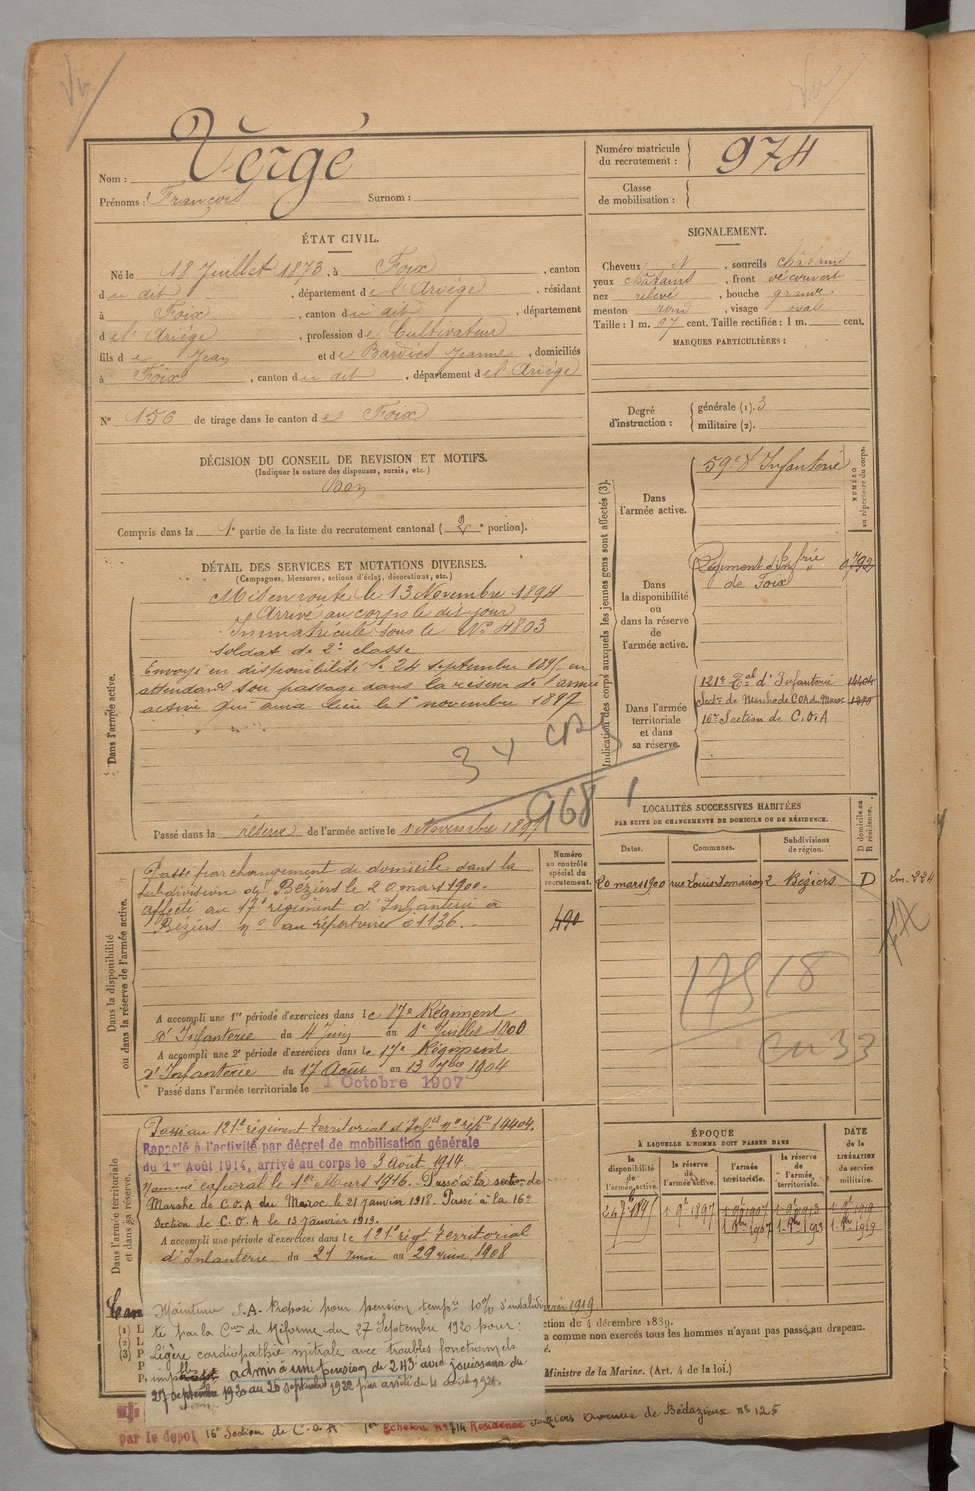 Vu
Nom : Vergé
Prénoms : François Surnom :
Numéro matricule du recrutement : 974
Classe de mobilisation :
ÉTAT CIVIL.
Né le 18 Juillet 1873, à Foix, canton
du dit, département de l'Ariège, résidant
à Foix, canton du dit, département
de l'Ariège, profession de Cultivateur
fils de Jean et de Bardies Jeanne, domiciliés
à Foix, canton du dit, département de l'Ariège
N° 156 de tirage dans le canton de Foix
SIGNALEMENT.
Cheveux , sourcils châtains
yeux châtains, front découvert
nez relevé, bouche grande
menton rond, visage ovale
Taille : 1 m. 67 cent. Taille rectifiée : 1 m. cent.
MARQUES PARTICULIÈRES :
Degré d'instruction : générale (1). 3
militaire (2).
DÉCISION DU CONSEIL DE REVISION ET MOTIFS.
(Indiquer la nature des dispenses, sursis, etc.)
Bon
Compris dans la 1e partie de la liste du recrutement cantonal (2e portion).
DÉTAIL DES SERVICES ET MUTATIONS DIVERSES.
(Campagnes, blessures, actions d'éclat, décorations, etc.)
Dans l'armée active.
Mis en route le 13 Novembre 1894
Arrivé au corps le dit jour
Immatriculé sous le N° 4803
Soldat de 2e classe
Envoyé en disponibilité le 24 septembre 1895 en
attendant son passage dans la réserve de l'armée
active qui aura lieu le 1er novembre 1897
968
Passé dans la réserve de l'armée active le 1 Novembre 1897
Indication des corps auxquels les jeunes gens sont affectés (3).
NUMÉRO au répertoire du corps.
Dans l'armée active.
59e d'Infanterie
Dans la disponibilité ou dans la réserve de l'armée active.
Régiment d'Infrie de Foix 0792
Dans l'armée territoriale et dans sa réserve.
121e Tal d'Infanterie 14404
Secton de Marche de COA du Maroc
16e Section de C.O.A
LOCALITÉS SUCCESSIVES HABITÉES
PAR SUITE DE CHANGEMENTS DE DOMICILE OU DE RÉSIDENCE.
Dates. Communes. Subdivisions de région. D domicile ou R résidence.
20 mars 1900 rue Louis 2 Béziers D
Dans la disponibilité ou dans la réserve de l'armée active.
Numéro au contrôle spécial du recrutement.
490
Passé par changement de domicile dans la
subdivision de Béziers le 20 mars 1900.
affecté au 17e régiment d'Infanterie à
Béziers n° au répertoire 01136.
A accompli une 1re période d'exercices dans le 17e Régiment
d'Infanterie du 4 Juin au 1er Juillet 1900
A accompli une 2e période d'exercices dans le 17e Régiment
d'Infanterie du 17 Août au 13 7bre 1904
Passé dans l'armée territoriale le 1 Octobre 1907
Dans l'armée territoriale et dans sa réserve.
Passé au 121e régiment territorial d'Infie n° répre 14404.
Rappelé à l'activité par décret de mobilisation générale
du 1er Août 1914, arrivé au corps le 3 Août 1914.
Nommé caporal le 1er Mars 1916. Passé à la secton de
Marche de C.O.A du Maroc le 21 janvier 1918. Passé à la 16e
Section de C.O.A le 15 Janvier 1919.
A accompli une période d'exercices dans le 121e régt territorial
d'Infanterie du 21 Juin au 29 Juin 1908
ÉPOQUE
À LAQUELLE L'HOMME DOIT PASSER DANS
la disponibilité de l'armée active. la réserve de l'armée active. l'armée territoriale. la réserve de l'armée territoriale.
DATE de la LIBÉRATION du service militaire.
Maintenu S.A. Proposé pour pension tempre 10% d'invalidi-
té par la Con de Réforme du 27 Septembre 1920 pour :
Légère cardiopathie mitrale avec troubles fonctionnels
admis à une pension de 243 avec jouissance du
27 septembre 1920 au 26 septembre 1922 par arrêté du 4 août 1921.
ction du 4 décembre 1889.
a comme non exercés tous les hommes n'ayant pas passé au drapeau.
Ministre de la Marine. (Art. 4 de la loi.)
par le dépot 16e Section de C.O.A 1er Echelon N° 714 Résidence Béziers Avenue de Bédarieux n° 125